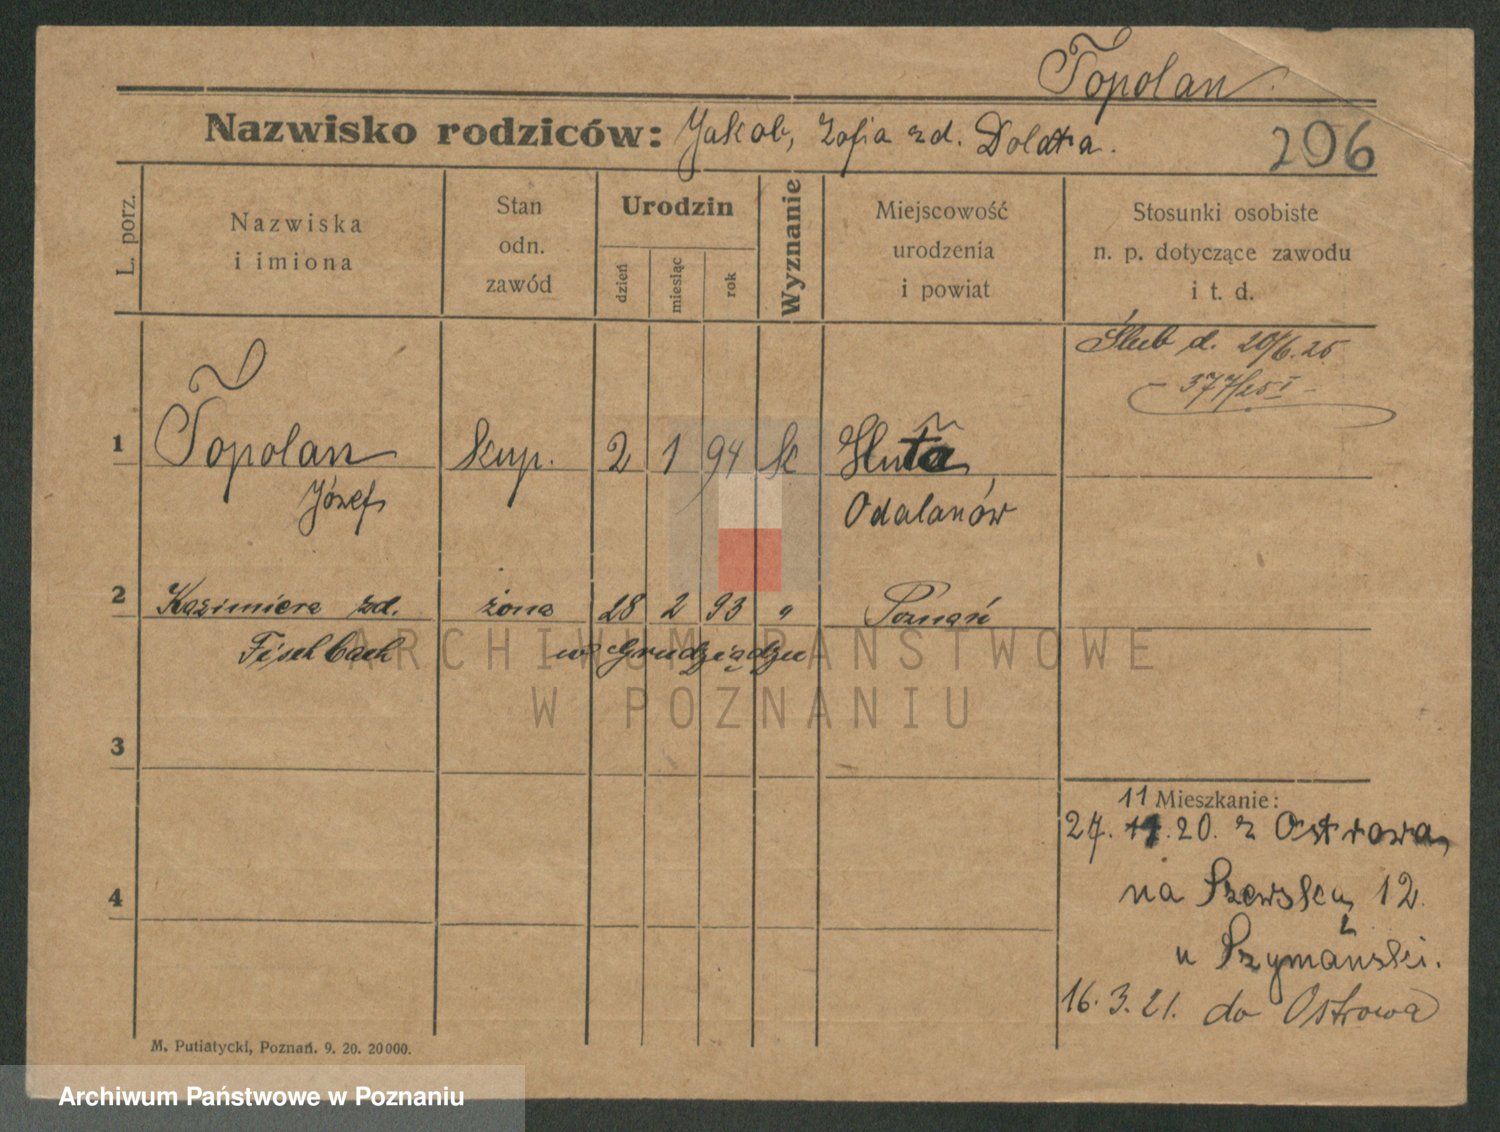 Topolan
Nazwisko rodziców: Jakob, Zofia zd. Dolatra.
296
L. porz.
Nazwiska
i imiona
Stan
odn.
zawód
Urodzin
dzień
miesiąc
rok
Wyznanie
Miejscowość
urodzenia
i powiat
Stosunki osobiste
n. p. dotyczące zawodu
i t. d.
Ślub d. 20/6.25
377/25 I
1 Topolan kup. 2 1 94 k Huta
Józef Odalanów
2 Kazimiera zd. żona 28 2 93 " Poznań
Fischbach w Grudziądzu
3
4
11 Mieszkanie:
27. 20. z Ostrowa,
na Szewską 12.
u Szymański.
16. 3. 21. do Ostrowa
M. Putiatycki, Poznań. 9. 20. 20000.
ARCHIWUM PAŃSTWOWE
W POZNANIU
Archiwum Państwowe w Poznaniu